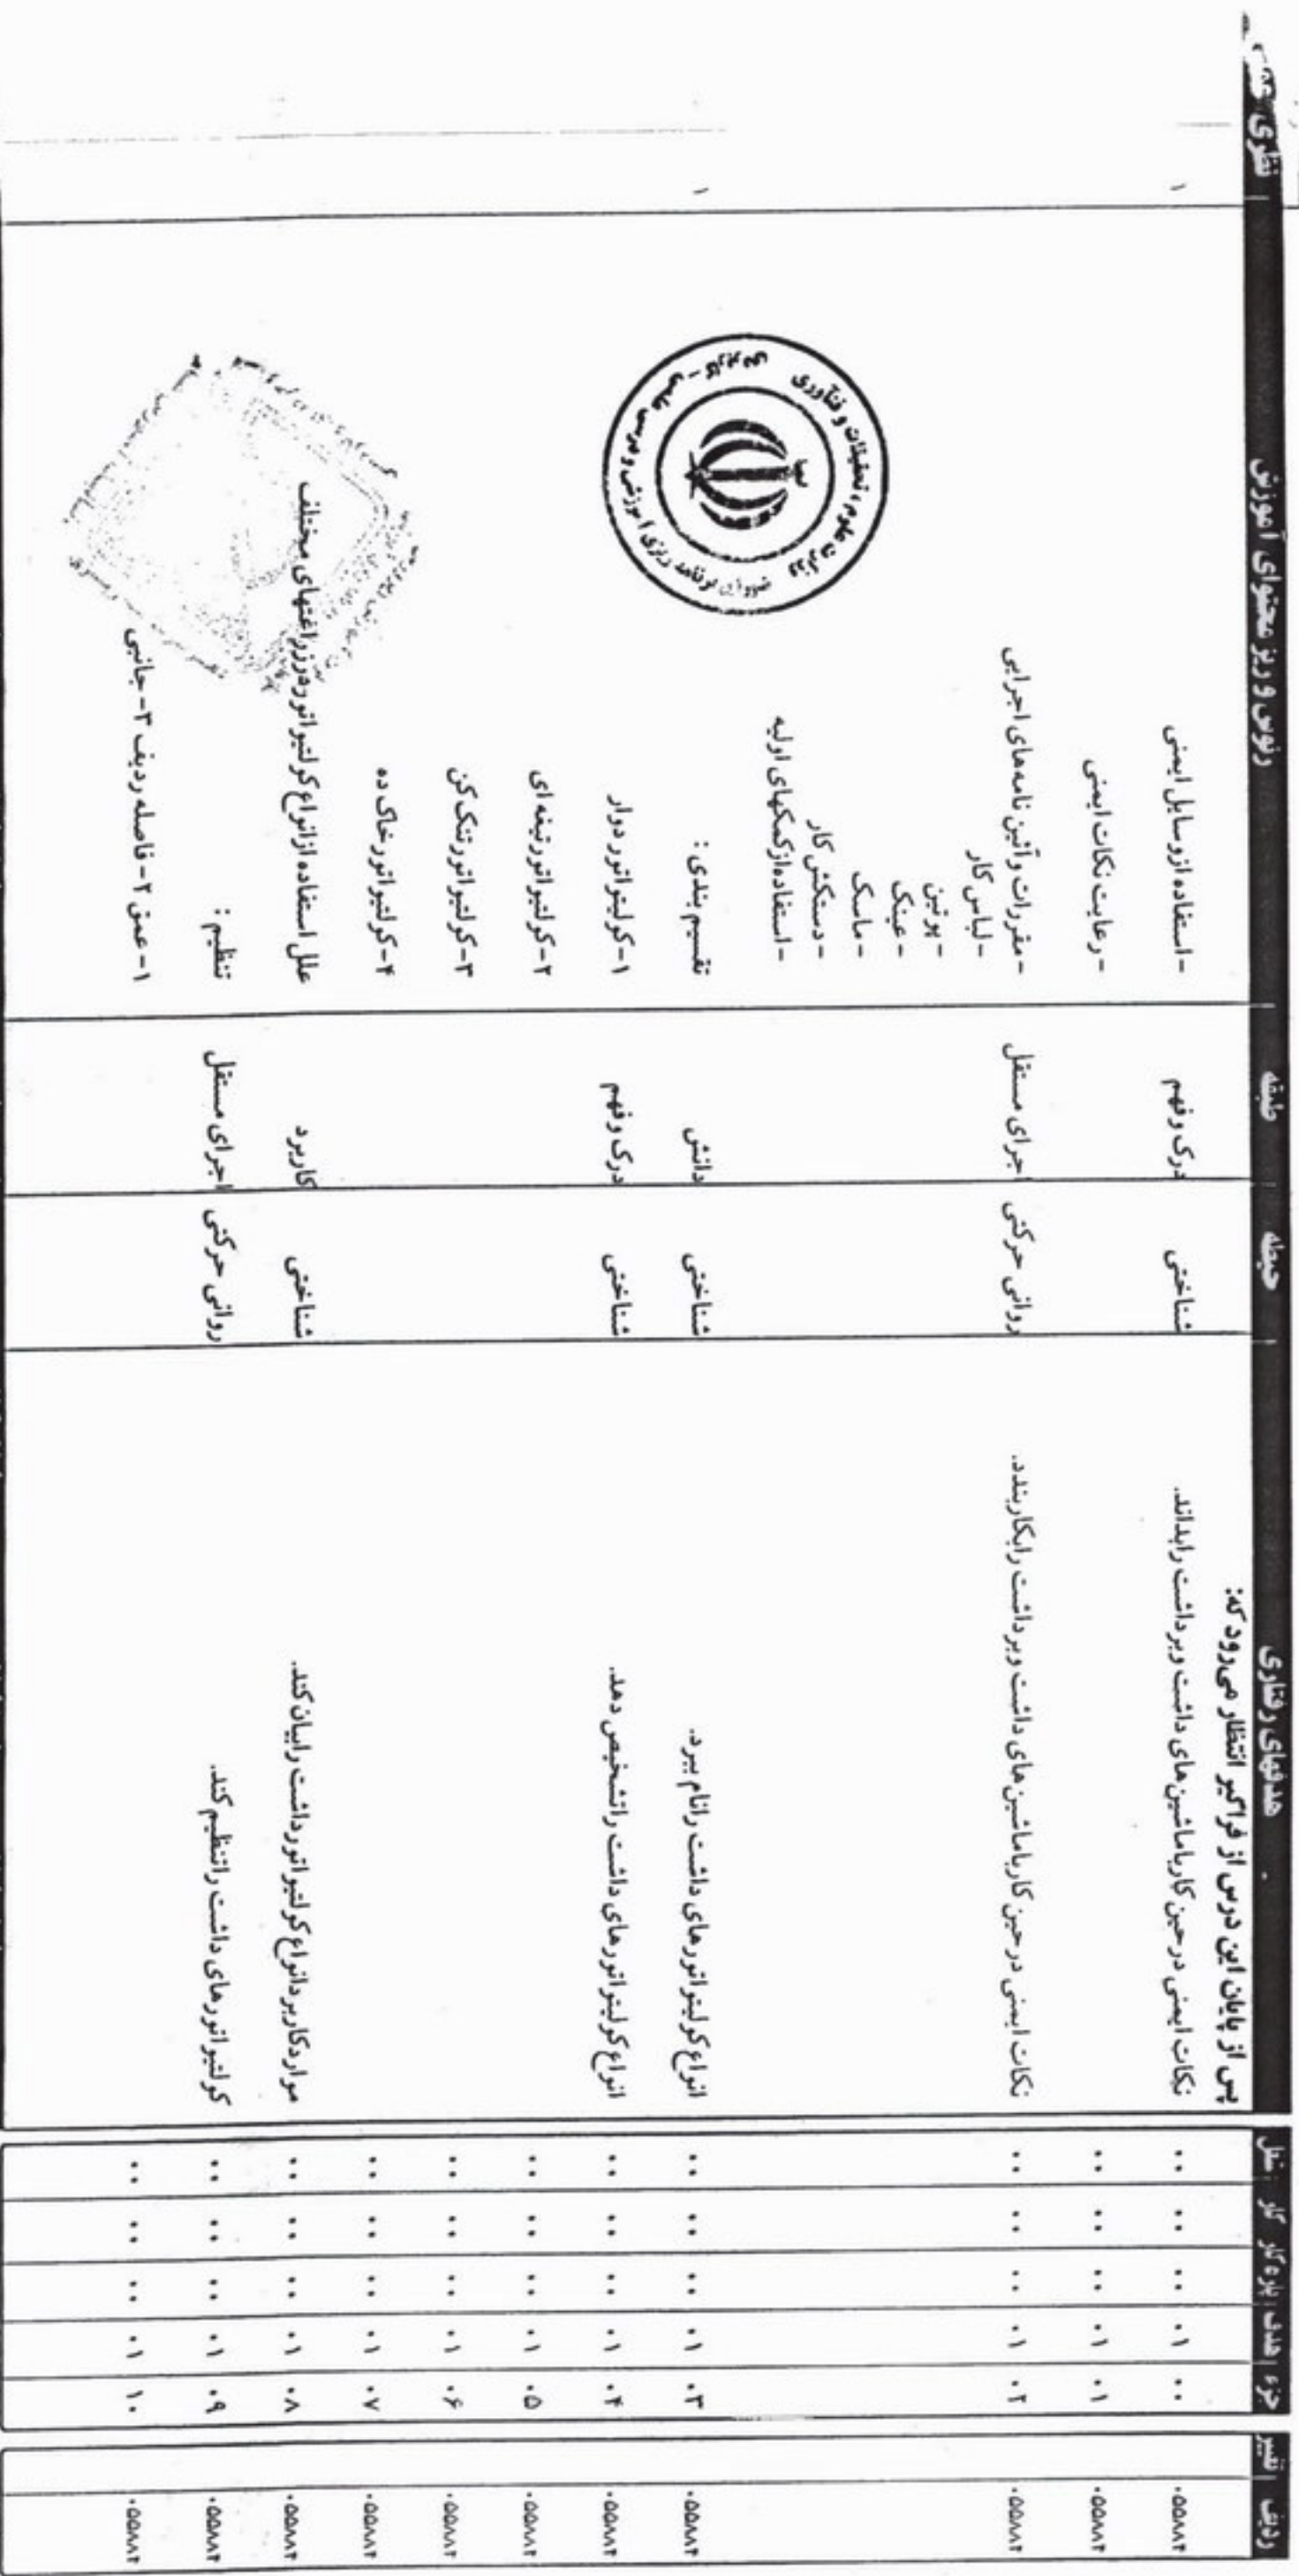 ردیف تغییر جزء هدف پاره کار کار شغل هدفهای رفتاری حیطه طبقه رئوس و ریز محتوای آموزش نظری
پس از پایان این درس از فراگیر انتظار می‌رود که:
۰۵۵۸۸۲ ۰۰ ۰۱ ۰۰ ۰۰ ۰۰ نکات ایمنی در حین کار با ماشین های داشت و برداشت را بداند. شناختی درک و فهم - استفاده از وسایل ایمنی ۱
۰۵۵۸۸۲ ۰۱ ۰۱ ۰۰ ۰۰ ۰۰ - رعایت نکات ایمنی
۰۵۵۸۸۲ ۰۲ ۰۱ ۰۰ ۰۰ ۰۰ نکات ایمنی در حین کار با ماشین های داشت و برداشت را بکار بندد. روانی حرکتی اجرای مستقل - مقررات و آئین نامه های اجرایی
- لباس کار
- پوتین
- عینک
- ماسک
- دستکش کار
- استفاده از کمکهای اولیه
۰۵۵۸۸۲ ۰۳ ۰۱ ۰۰ ۰۰ ۰۰ انواع کولیتواتورهای داشت را نام ببرد. شناختی دانش تقسیم بندی : ۱
۰۵۵۸۸۲ ۰۴ ۰۱ ۰۰ ۰۰ ۰۰ انواع کولیتواتورهای داشت را تشخیص دهد. شناختی درک و فهم ۱- کولیتواتور دوار
۰۵۵۸۸۲ ۰۵ ۰۱ ۰۰ ۰۰ ۰۰ ۲- کولتیواتور تیغه ای
۰۵۵۸۸۲ ۰۶ ۰۱ ۰۰ ۰۰ ۰۰ ۳- کولتیواتور تنک کن
۰۵۵۸۸۲ ۰۷ ۰۱ ۰۰ ۰۰ ۰۰ ۴- کولتیواتور خاک ده
۰۵۵۸۸۲ ۰۸ ۰۱ ۰۰ ۰۰ ۰۰ موارد کاربرد انواع کولتیواتور داشت را بیان کند. شناختی کاربرد علل استفاده از انواع کولتیواتور در زراعتهای مختلف
۰۵۵۸۸۲ ۰۹ ۰۱ ۰۰ ۰۰ ۰۰ کولتیواتورهای داشت را تنظیم کند. روانی حرکتی اجرای مستقل تنظیم :
۰۵۵۸۸۲ ۱۰ ۰۱ ۰۰ ۰۰ ۰۰ ۱- عمق ۲- فاصله ردیف ۳- جانبی
وزارت علوم، تحقیقات و فنآوری
شورای برنامه ریزی آموزشی و درسی علمی - کاربردی